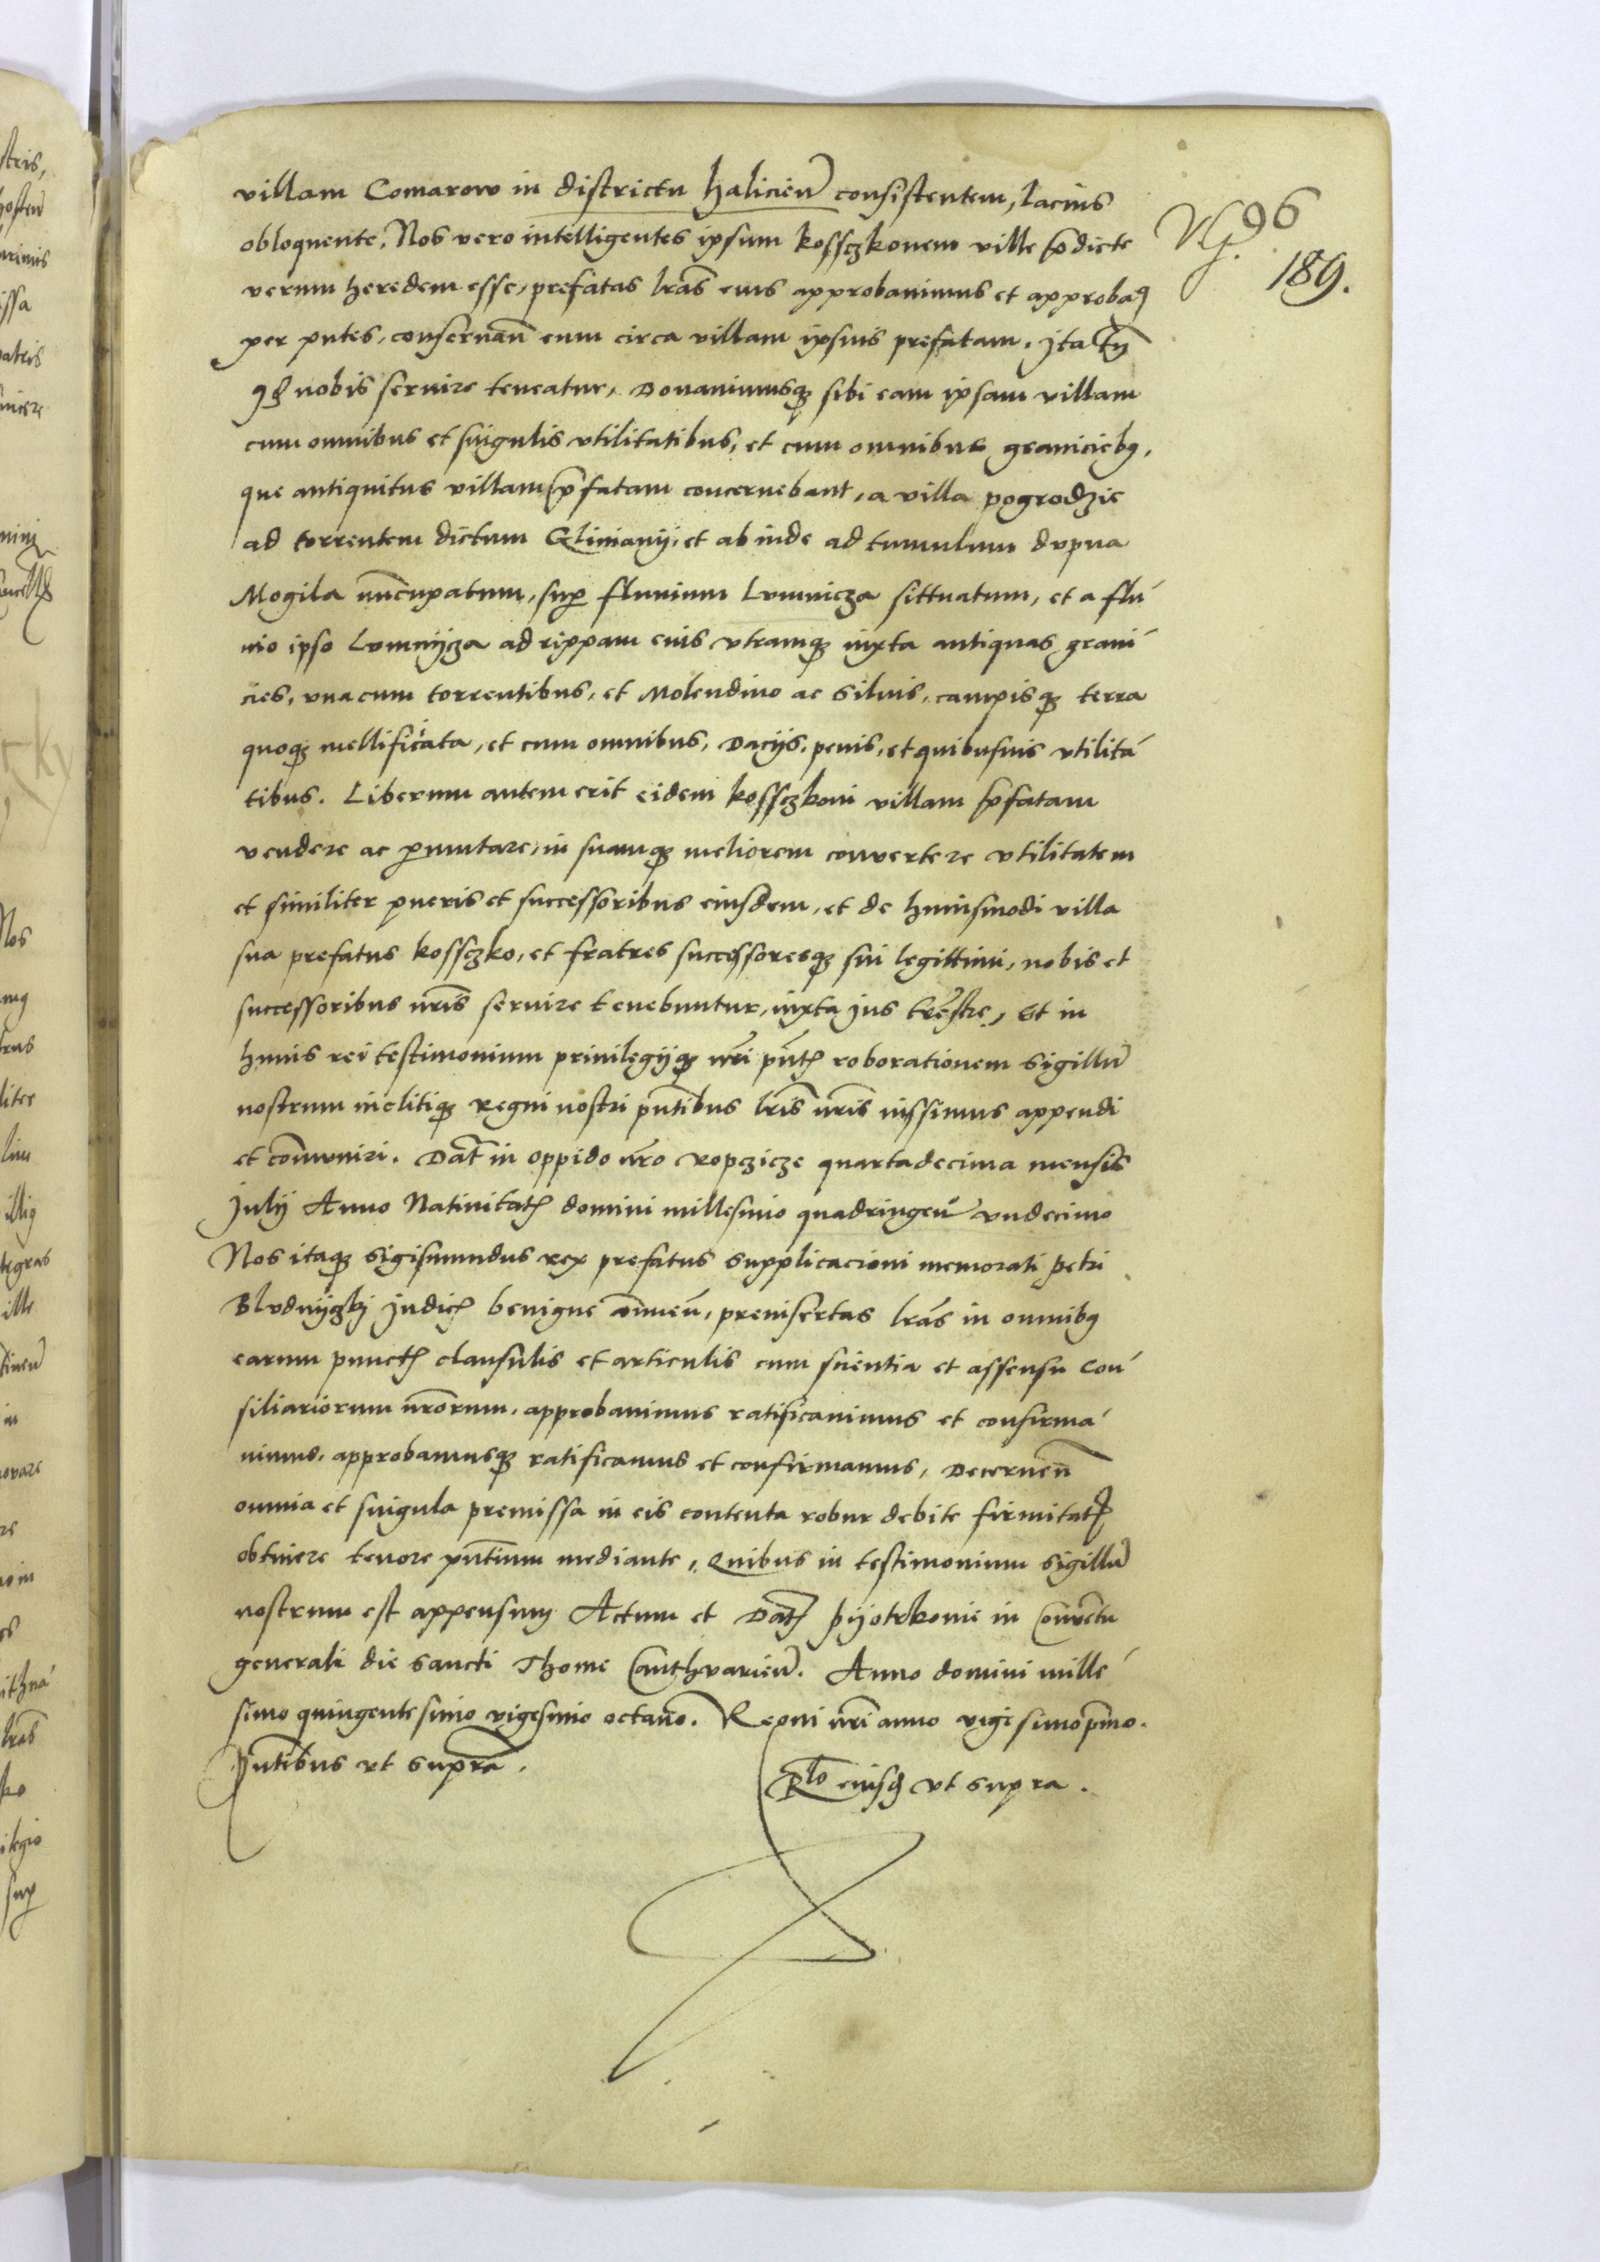 villam Comarow in districtu halicieñ consistentem, lacius
obloquente. Nos vero intelligentes ipsum kossczkonem ville p̃dicte
verum heredem esse, prefatas lr̃as eius approbauimus et approba
per pñtes, conseruañ eum circa villam ipsius prefatam. Ita tñ
nobis seruire teneatur, Donauimusq3 sibi eam ipsam villam
cum omnibus et singulis vtilitatibus, et cum omnibus graniciebq,
que antiquitus villam p̃fatam concernebant, a villa pogrodzie
ad torrentem dictum Glinianij, et ab inde ad tumulum dvpna
Mogila nũcupatum, sup fluuium Lvmnicza sittuatum, et a flu
uio ipso Lvmnijcza ad rippam eius vtramq3 iuxta antiquas grani
cies, vna cum torrentibus, et Molendino ac siluis, campisq3 terra
quoq3 mellificata, et cum omnibus, Dacijs, penis, et quibusuis vtilita
tibus. Liberum autem erit eidem kossczkoni villam p̃fatam
vendere ac pmutare, in suamq3 meliorem conuertere vtilitatem
et similiter pueris et successoribus eiusdem, et de huiusmodi villa
sua prefatus kossczko, et fratres successoresq3 sui legittimi, nobis et
successoribus nr̃is seruire tenebuntur, iuxta jus tr̃estre, Et in
huius rei testimonium priuilegijq3 nr̃i pñt roborationem sigillũ
nostrum inclitiq3 Regni nostri pñtibus lr̃is nr̃is iussimus appendi
et cõmuniri. Dat̃ in oppido nr̃o ropczicze quartadecima mensis
Julij Anno Natiuitat domini millesimo quadringeñ vndecimo
Nos itaq3 Sigismundus rex prefatus supplicacioni memorati petri
Blvdnijczkj judic benigne añueñ, preinsertas lr̃as in omnibq
earum punct clausulis et articulis cum scientia et assensu Con
siliariorum nr̃orum, approbauimus ratificauimus et confirma
uimus, approbamusq3 ratificamus et confirmamus, Decerneñ
omnia et singula premissa in eis contenta robur debite firmitat
obtinere tenore pñtium mediante, Quibus in testimonium sigillũ
nostrum est appensum Actum et Dat̃ pijotrkouie in Conuẽtu
generali die sancti Thome Canthvarieñ. Anno domini mille
simo quingentesimo vigesimo octauo. Regni nr̃i anno vigesimo p̃mo.
Pñtibus vt supra.
Rlo eiusd vt supra.
96
189.